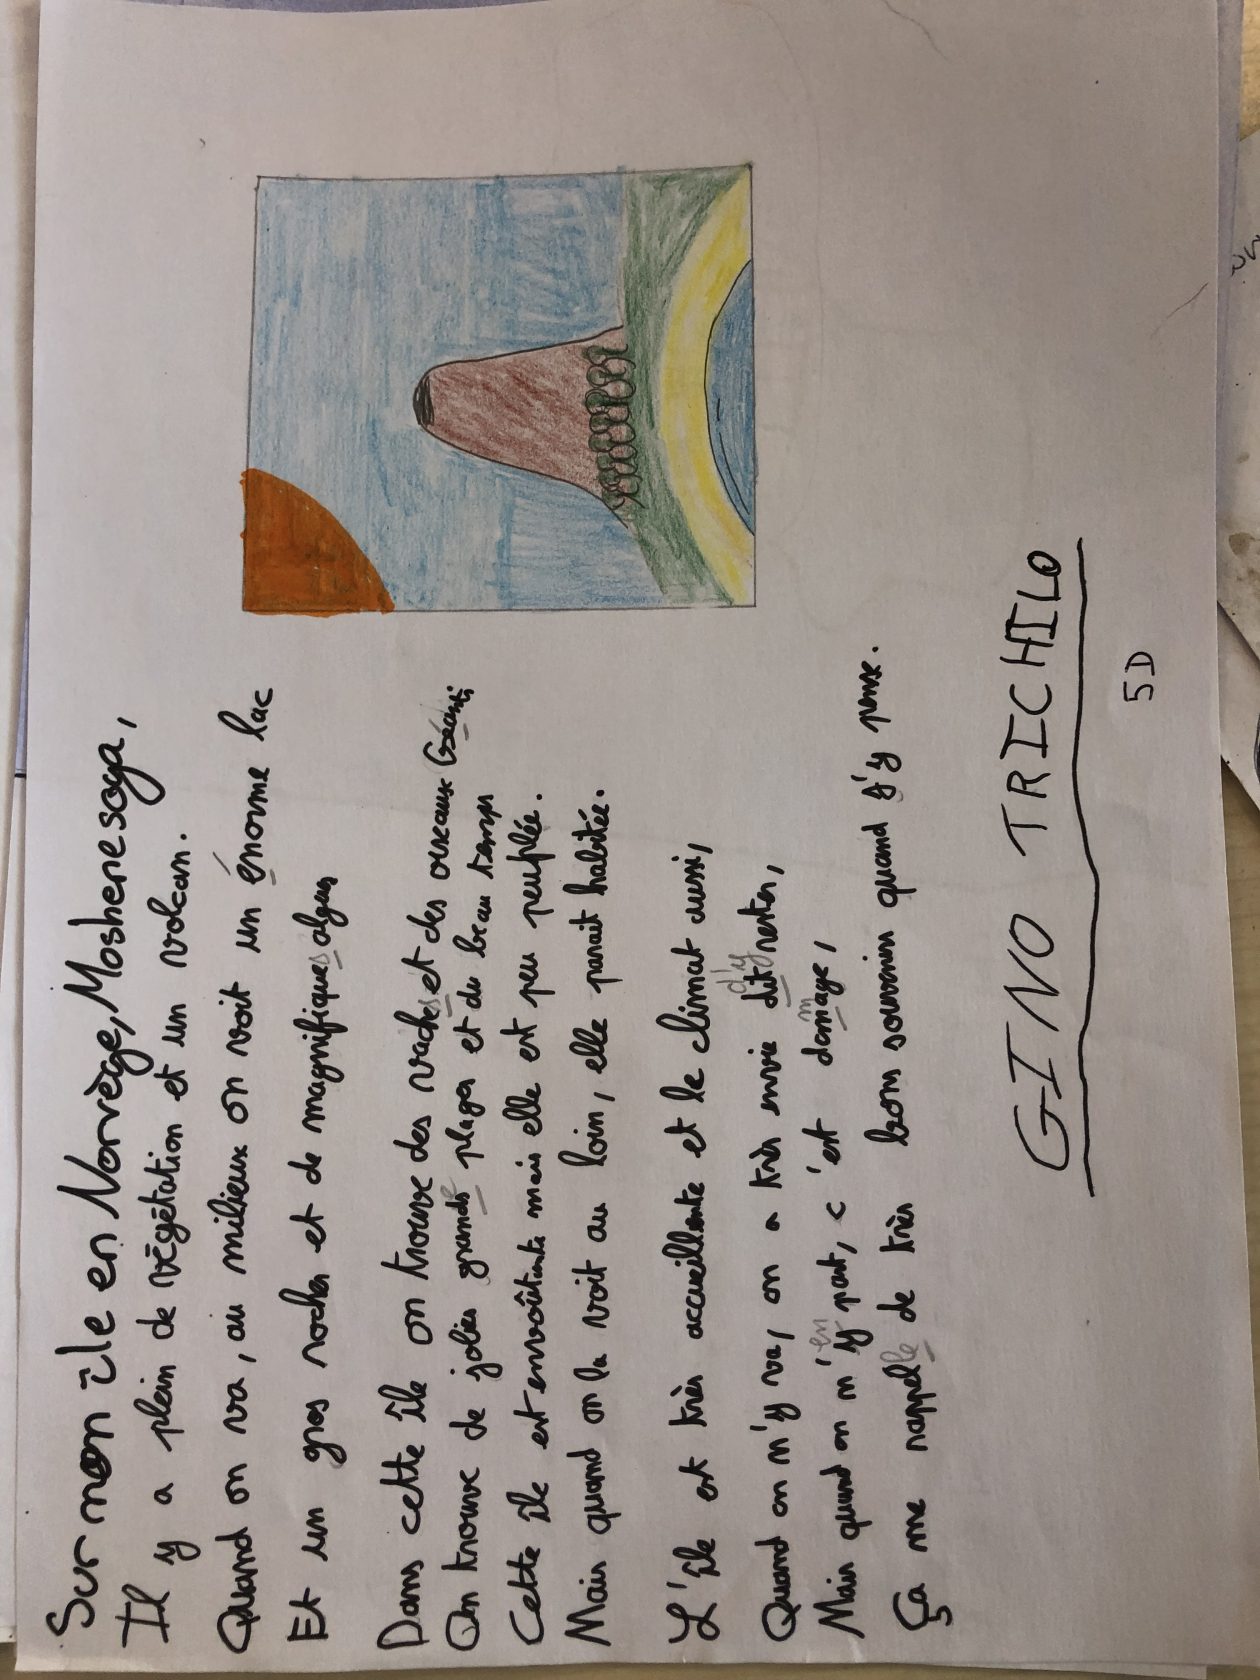 Sur mon île en Norvège, Moshenesoya,
Il y a plein de végétation et un volcan.
Quand on va, au milieux on voit un énorme lac
Et un gros rocher et de magnifiques algues
Dans cette île on trouve des vaches et des oiseaux Géants
On trouve de jolies grande plages et du beau temps
Cette île est envoûtante mais elle est peu peuplée.
Mais quand on la voit au loin, elle parait habitée.
L'île est très accueillante et le climat aussi,
Quand on n'y va, on a très envie d'y rester,
Mais quand on n'y en part, c'est dommage,
Ça me rappelle de très bons souvenirs quand j'y pense.
GINO TRICHILO
5D